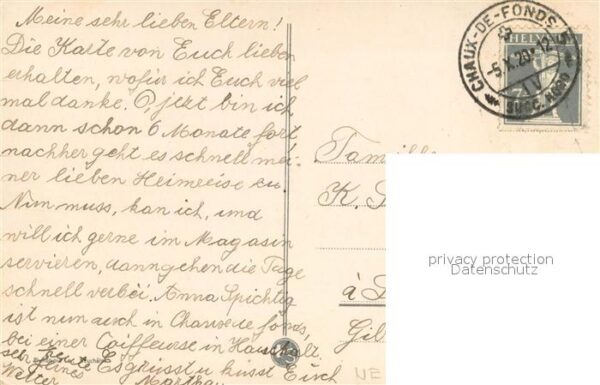 Meine sehr lieben Eltern!
Die Karte von Euch lieben
erhalten, wofür ich Euch viel
mal danke. O, jetzt bin ich
dann schon 6 Monate fort
nachher geht es schnell mei-
ner lieben Heimreise zu
Nun muss, kan ich, und
will ich gerne im Magasin
servieren, dann gehen die Tage
schnell verbei. Anna Spichtig
ist nun auch in Chaux de fonds,
bei einer Coiffeurse in Haushalt.
sehr schönes heute Es grüsst u küsst Euch
Wetter Martha
Familie
K. S
à
Gi
CHAUX-DE-FONDS
-5.X.20.12
IV
SUCC. NORD
HELVETIA
privacy protection
Datenschutz
NE